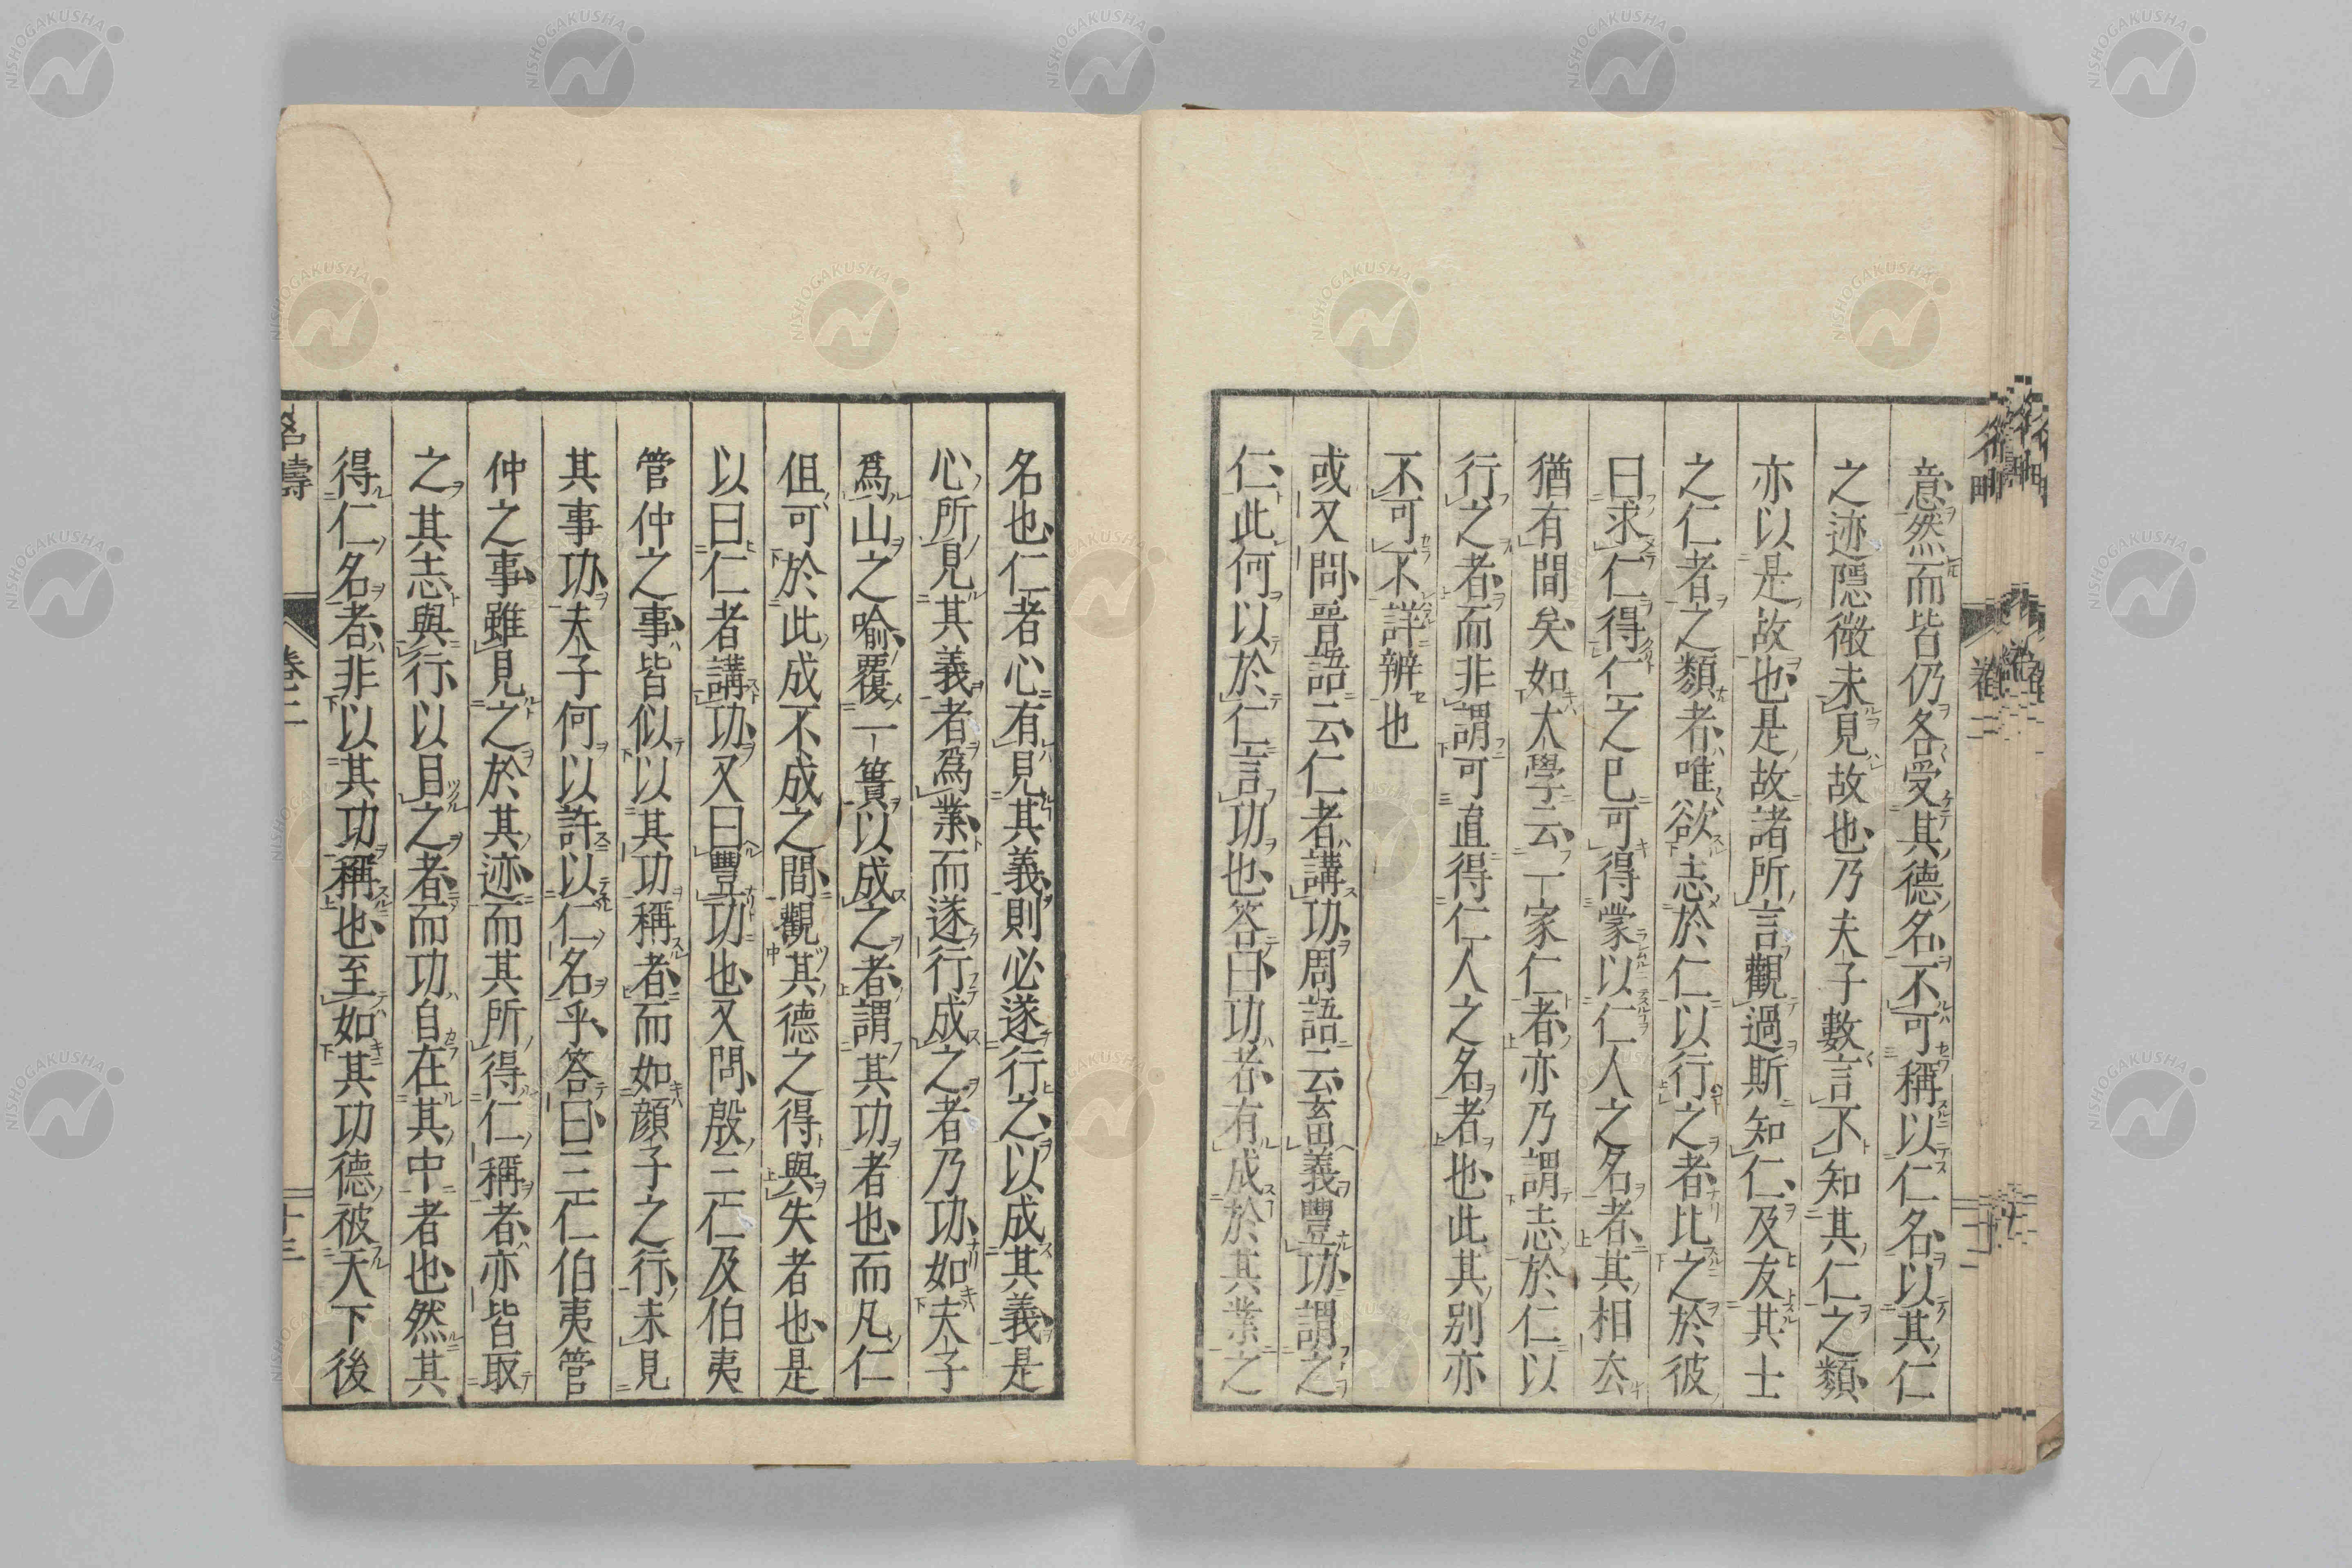 意然而皆仍各受其德名不可稱以仁名以其仁
之迹隱微未見故也乃夫子數言不知其仁之類
亦以是故也是故諸所言觀過斯知仁及友其士
之仁者之類者唯欲志於仁以行之者比之於彼
曰求仁得仁之已可得蒙以仁人之名者其相去
猶有間矣如大學云一家仁者亦乃謂志於仁以
行之者而非謂可直得仁人之名者也此其別亦
不可不詳辨也
或又問晉語云仁者講功周語云畜義豐功謂之
仁此何以於仁言功也答曰功者有成於其業之
名也仁者心有見其義則必遂行之以成其義是
心所見其義者爲業而遂行成之者乃功如夫子
爲山之喩覆一簣以成之者謂其功者也而凡仁
但可於此成不成之間觀其德之得與失者也是
以曰仁者講功又曰豐功也又問殷三仁及伯夷
管仲之事皆似以其功稱者而如顏子之行未見
其事功夫子何以許以仁名乎答曰三仁伯夷管
仲之事雖見之於其迹而其所得仁稱者亦皆取
之其志與行以目之者而功自在其中者也然其
得仁名者非以其功稱也至如其功德被天下後
卷二
十三
NISHOGAKUSHA